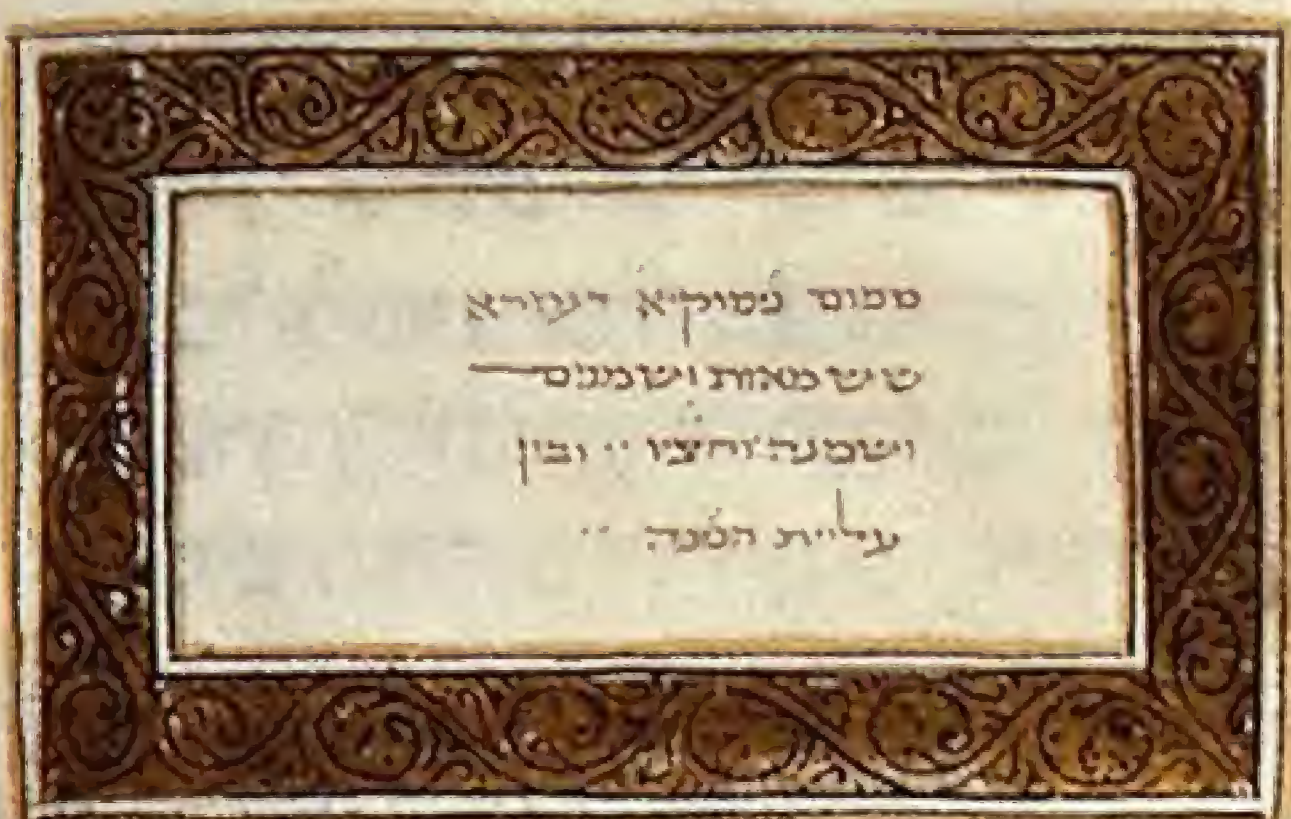 סכום פסוקיא דעזרא
שש מאות ושמנים
ושמנה וחציו ·· ובין
עליית הסנה ··